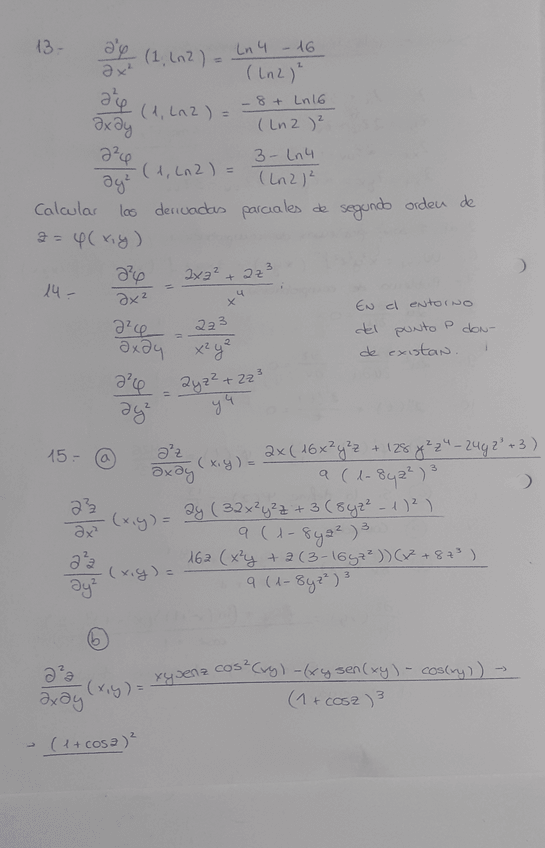 13- ∂²φ/∂x² (1, Ln2) = (Ln4 - 16)/(Ln2)²
∂²φ/∂x∂y (1, Ln2) = (-8 + Ln16)/(Ln2)²
∂²φ/∂y² (1, Ln2) = (3 - Ln4)/(Ln2)²
Calcular las derivadas parciales de segundo orden de
z = φ(x,y)
14- ∂²φ/∂x² = (2xz² + 2z³)/x⁴ .
∂²φ/∂x∂y = 2z³/(x²y²)
∂²φ/∂y² = (2yz² + 2z³)/y⁴
En el entorno
del punto P don-
de existan.
15- (a) ∂²z/∂x∂y (x,y) = 2x(16x²y²z + 128y²z⁴ - 24yz³ + 3)/(9(1-8yz²)³)
∂²z/∂x² (x,y) = 2y(32x²y²z + 3(8yz² - 1)²)/(9(1-8yz²)³)
∂²z/∂y² (x,y) = 16z(x²y + z(3-16yz²))(x² + 8z³)/(9(1-8yz²)³)
(b)
∂²z/∂x∂y (x,y) = xy senz cos²(xy) - (xy sen(xy) - cos(xy)) → / (1 + cosz)³
→ (1 + cosz)²